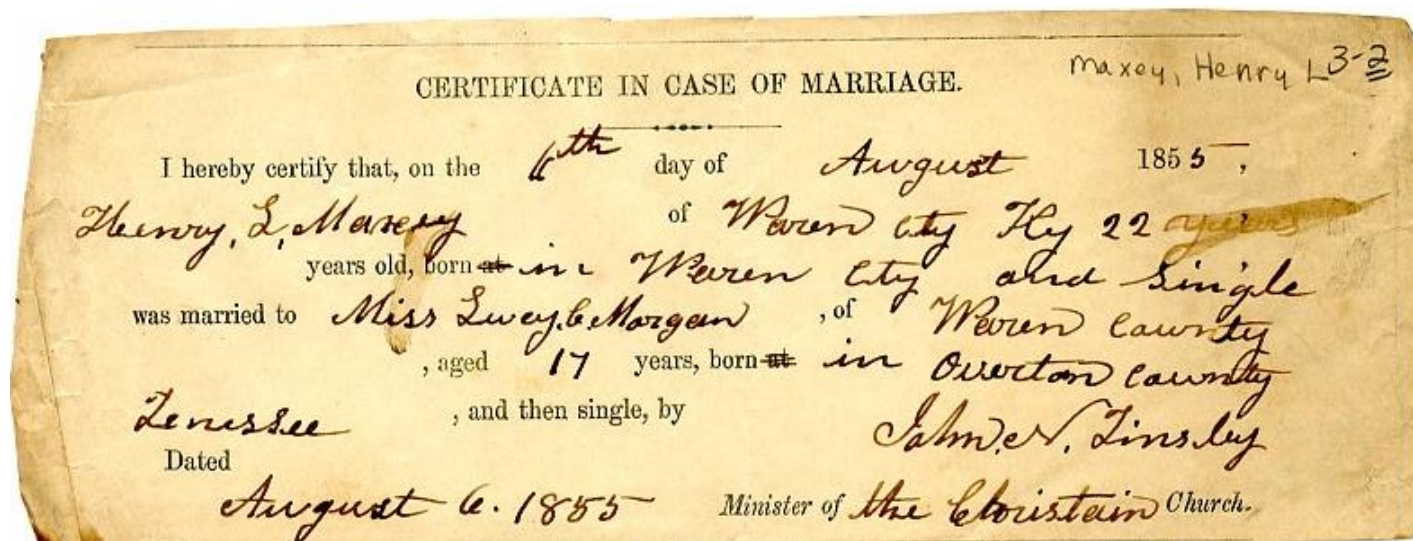 maxey, Henry L 3-2
CERTIFICATE IN CASE OF MARRIAGE.
I hereby certify that, on the 6th day of August 1855,
Henry, L, Maxey of Waren cty Ky 22 years
years old, born at in Waren cty and single
was married to Miss Lucy, C Morgan , of Waren county
, aged 17 years, born at in Overton county
Tenissee , and then single, by John. N. Tinsley
Dated
August 6. 1855 Minister of the Christain Church.